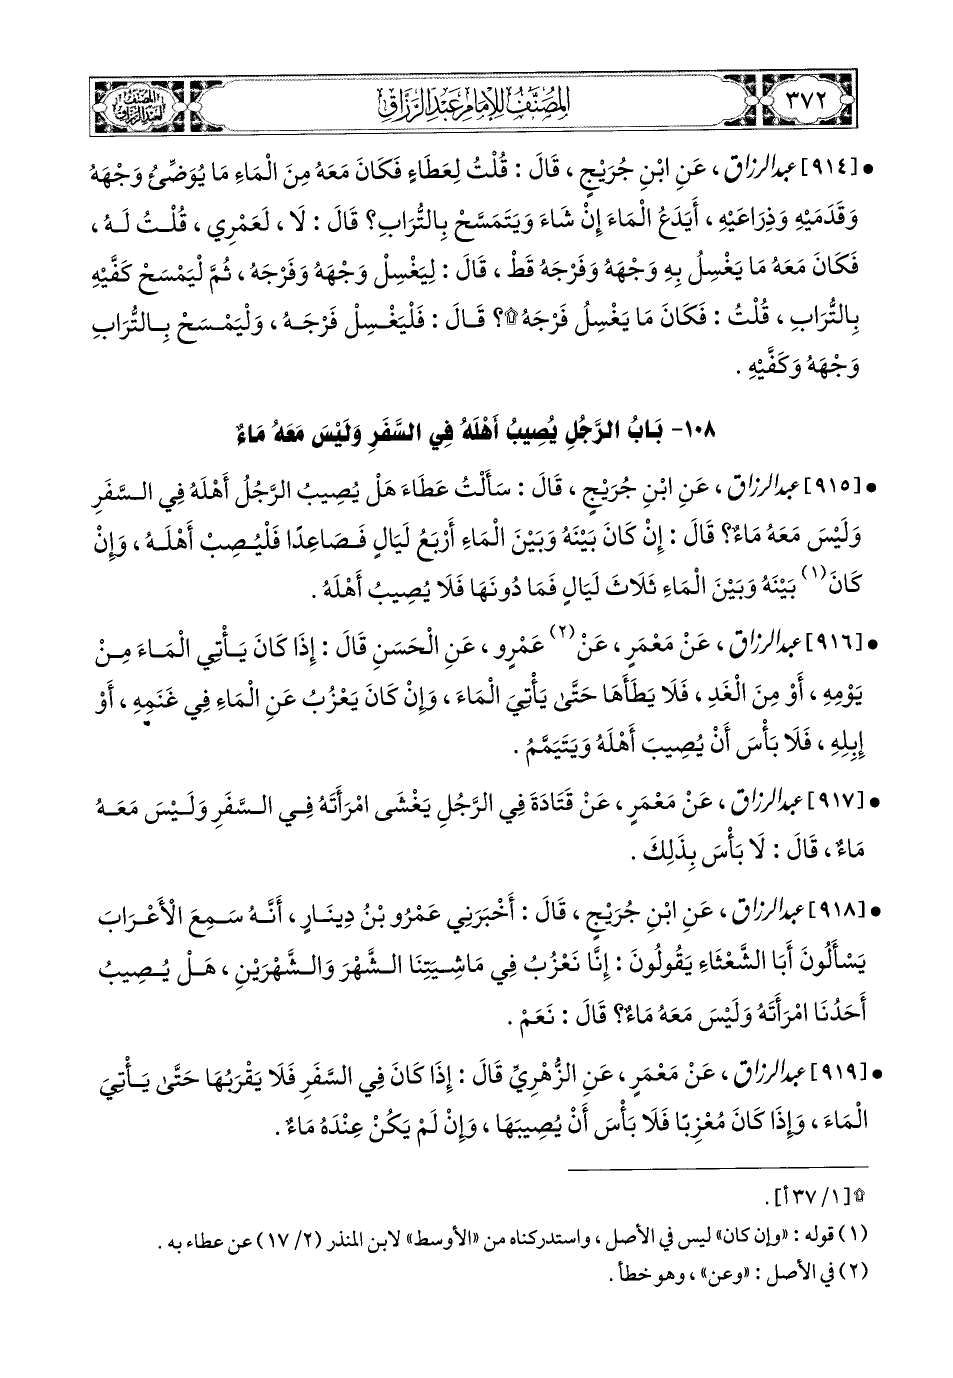 المصنف للإمام عبد الرزاق
٣٧٢
• [٩١٤] عبد الرزاق ، عَنِ ابْنِ جُرَيْجٍ ، قَالَ : قُلْتُ لِعَطَاءٍ فَكَانَ مَعَهُ مِنَ الْمَاءِ مَا يُوَضِّئُ وَجْهَهُ
وَقَدَمَيْهِ وَذِرَاعَيْهِ ، أَيَدَعُ الْمَاءَ إِنْ شَاءَ وَيَتَمَسَّحُ بِالتُّرَابِ؟ قَالَ : لَا ، لَعَمْرِي ، قُلْتُ لَهُ ،
فَكَانَ مَعَهُ مَا يَغْسِلُ بِهِ وَجْهَهُ وَفَرْجَهُ قَطْ ، قَالَ : لِيَغْسِلْ وَجْهَهُ وَفَرْجَهُ ، ثُمَّ لْيَمْسَحْ كَفَّيْهِ
بِالتُّرَابِ ، قُلْتُ : فَكَانَ مَا يَغْسِلُ فَرْجَهُ۩؟ قَالَ : فَلْيَغْسِلْ فَرْجَهُ ، وَلْيَمْسَحْ بِالتُّرَابِ
وَجْهَهُ وَكَفَّيْهِ .
١٠٨- بَابُ الرَّجُلِ يُصِيبُ أَهْلَهُ فِي السَّفَرِ وَلَيْسَ مَعَهُ مَاءٌ
• [٩١٥] عبد الرزاق ، عَنِ ابْنِ جُرَيْجٍ ، قَالَ : سَأَلْتُ عَطَاءً هَلْ يُصِيبُ الرَّجُلُ أَهْلَهُ فِي السَّفَرِ
وَلَيْسَ مَعَهُ مَاءٌ؟ قَالَ : إِنْ كَانَ بَيْنَهُ وَبَيْنَ الْمَاءِ أَرْبَعُ لَيَالٍ فَصَاعِدًا فَلْيُصِبْ أَهْلَهُ ، وَإِنْ
كَانَ(١) بَيْنَهُ وَبَيْنَ الْمَاءِ ثَلَاثَ لَيَالٍ فَمَا دُونَهَا فَلَا يُصِيبُ أَهْلَهُ .
• [٩١٦] عبد الرزاق ، عَنْ مَعْمَرٍ ، عَنْ(٢) عَمْرٍو ، عَنِ الْحَسَنِ قَالَ : إِذَا كَانَ يَأْتِي الْمَاءَ مِنْ
يَوْمِهِ ، أَوْ مِنَ الْغَدِ ، فَلَا يَطَأْهَا حَتَّى يَأْتِيَ الْمَاءَ ، وَإِنْ كَانَ يَعْزُبُ عَنِ الْمَاءِ فِي غَنَمِهِ ، أَوْ
إِبِلِهِ ، فَلَا بَأْسَ أَنْ يُصِيبَ أَهْلَهُ وَيَتَيَمَّمُ .
• [٩١٧] عبد الرزاق ، عَنْ مَعْمَرٍ ، عَنْ قَتَادَةَ فِي الرَّجُلِ يَغْشَى امْرَأَتَهُ فِي السَّفَرِ وَلَيْسَ مَعَهُ
مَاءٌ ، قَالَ : لَا بَأْسَ بِذَلِكَ .
• [٩١٨] عبد الرزاق ، عَنِ ابْنِ جُرَيْجٍ ، قَالَ : أَخْبَرَنِي عَمْرُو بْنُ دِينَارٍ ، أَنَّهُ سَمِعَ الْأَعْرَابَ
يَسْأَلُونَ أَبَا الشَّعْثَاءِ يَقُولُونَ : إِنَّا نَعْزُبُ فِي مَاشِيَتِنَا الشَّهْرَ وَالشَّهْرَيْنِ ، هَلْ يُصِيبُ
أَحَدُنَا امْرَأَتَهُ وَلَيْسَ مَعَهُ مَاءٌ؟ قَالَ : نَعَمْ .
• [٩١٩] عبد الرزاق ، عَنْ مَعْمَرٍ ، عَنِ الزُّهْرِيِّ قَالَ : إِذَا كَانَ فِي السَّفَرِ فَلَا يَقْرَبُهَا حَتَّى يَأْتِيَ
الْمَاءَ ، وَإِذَا كَانَ مُعْزِبًا فَلَا بَأْسَ أَنْ يُصِيبَهَا ، وَإِنْ لَمْ يَكُنْ عِنْدَهُ مَاءٌ .
۩ [١/ ٣٧ أ] .
(١) قوله : «وإن كان» ليس في الأصل ، واستدركناه من «الأوسط» لابن المنذر (٢/ ١٧) عن عطاء به .
(٢) في الأصل : «وعن» ، وهو خطأ .